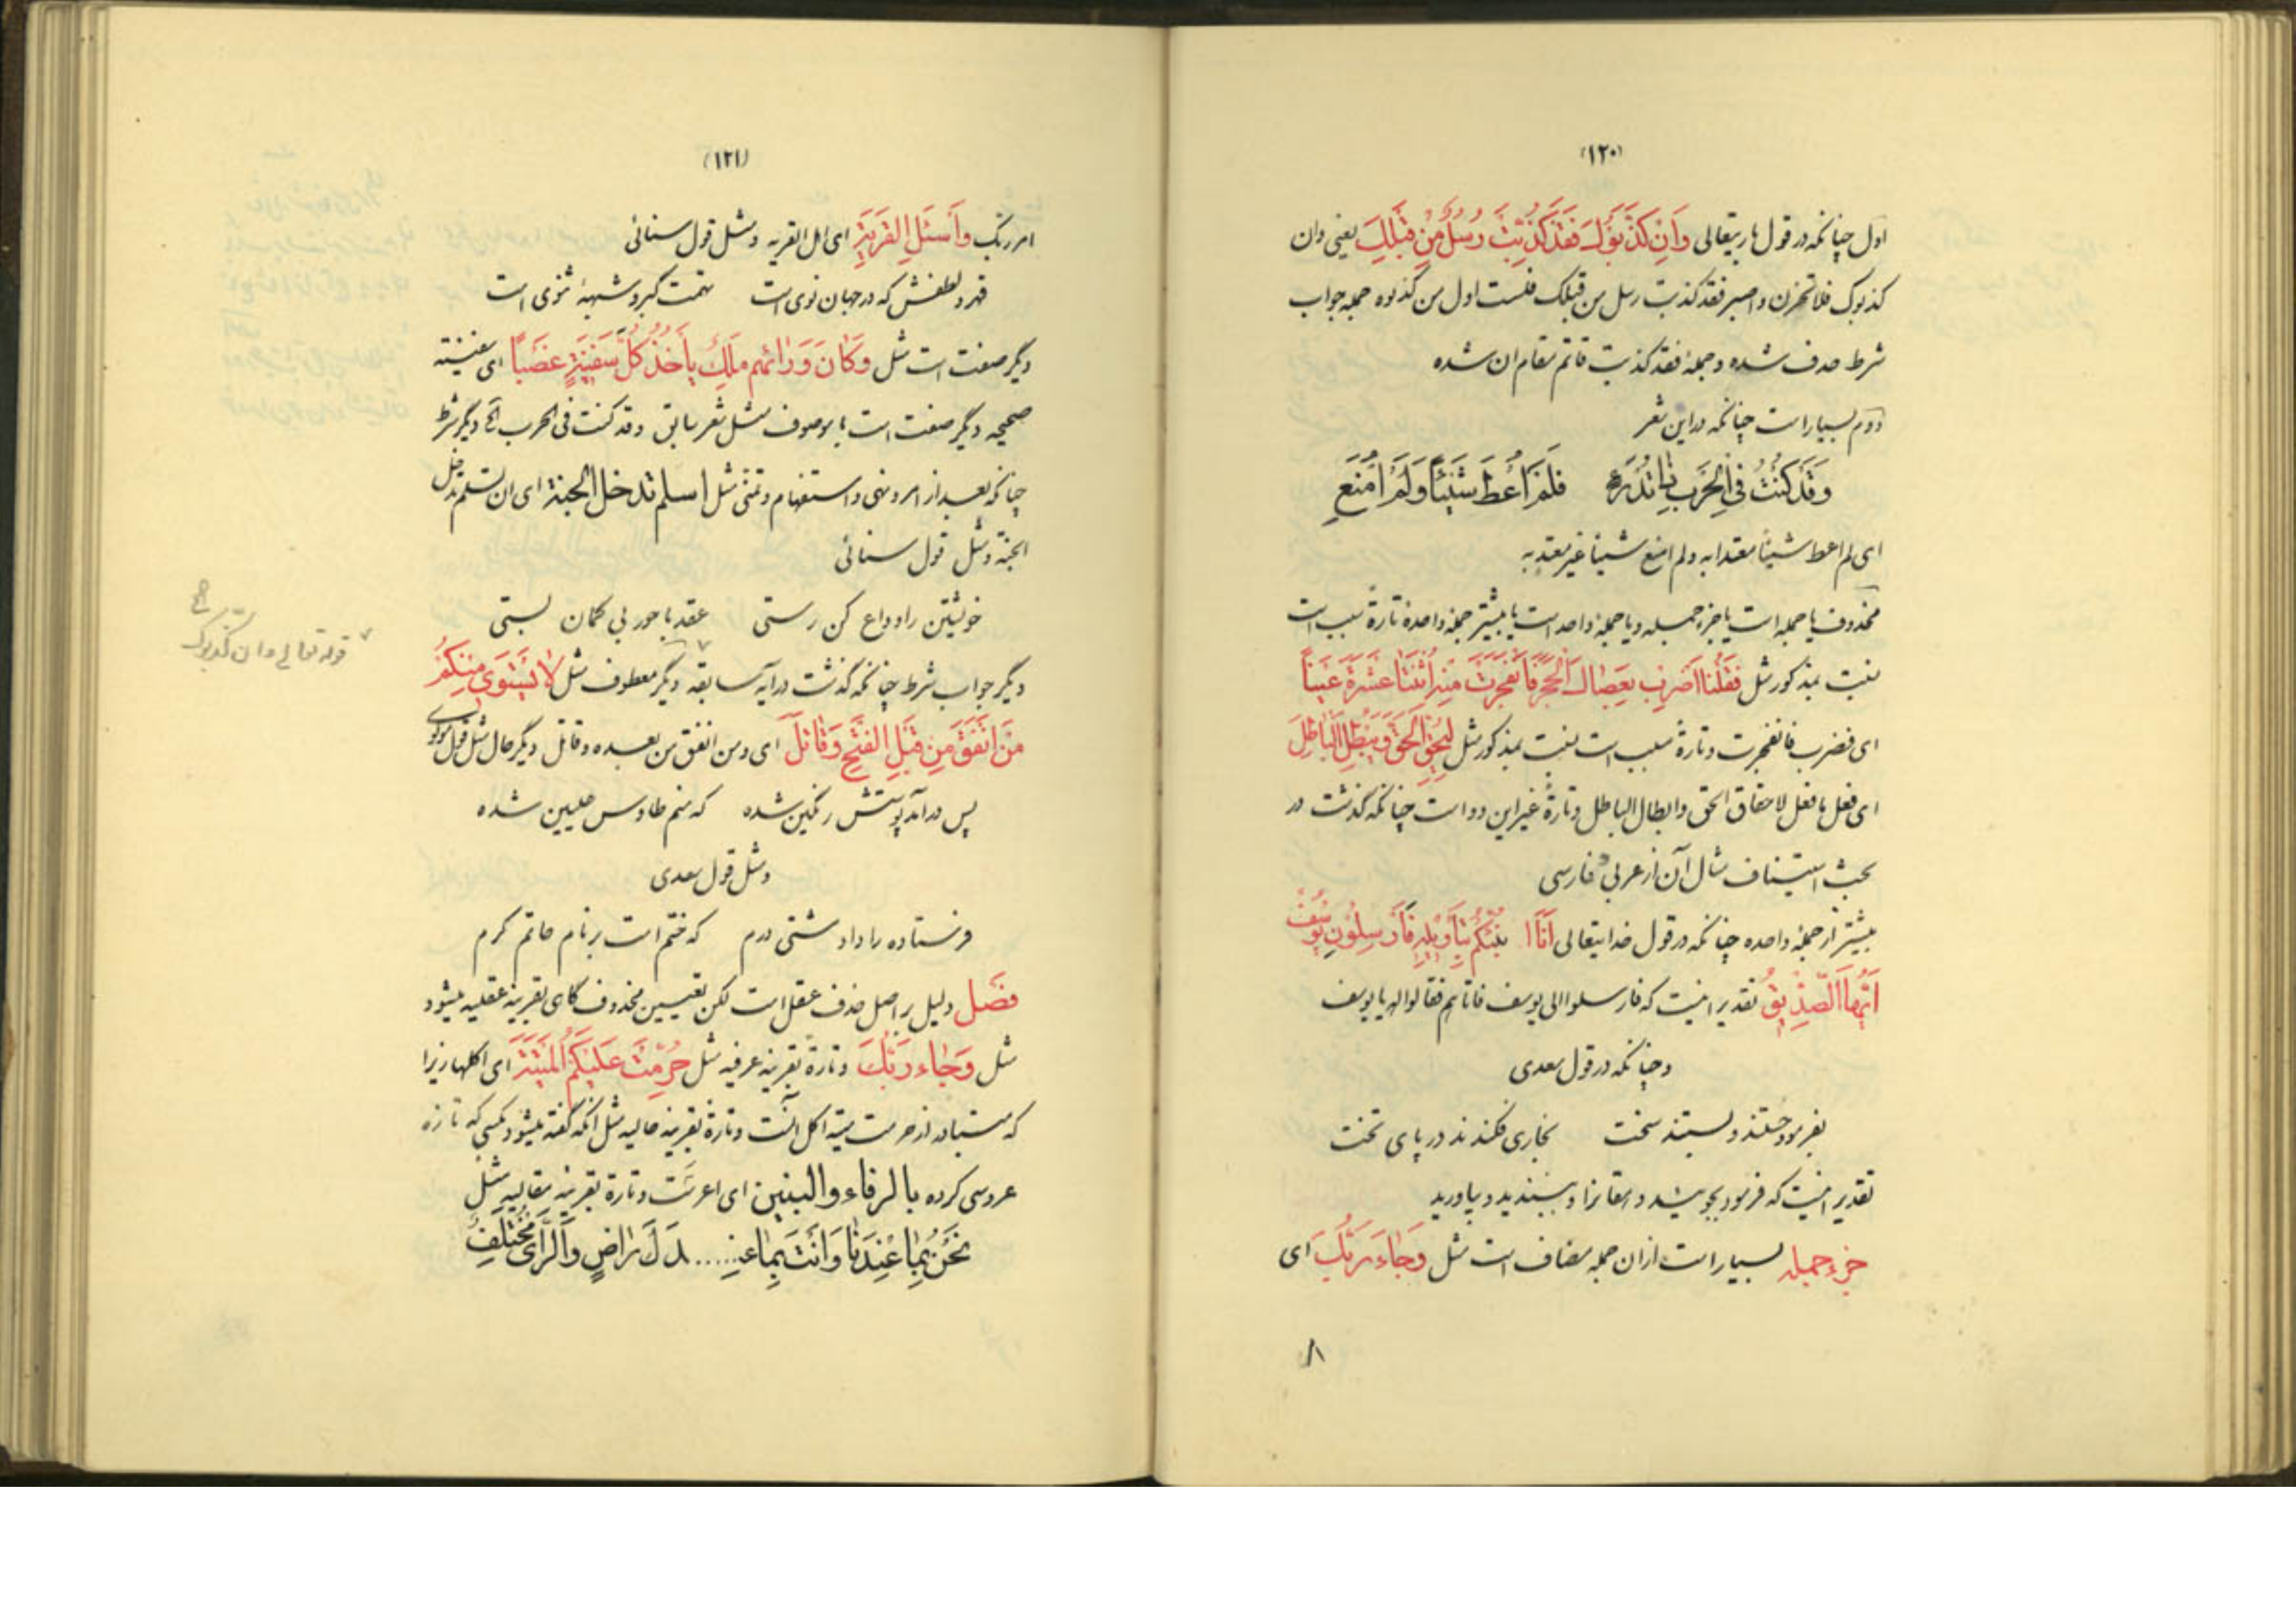 (۱۲۰)
اول چنانکه در قول باریتعالی وَاِنْ کَذَّبُوکَ فَقَدْ کُذِّبَتْ رُسُلٌ مِنْ قَبْلِکَ یعنی وان
کذبوک فلا تحزن واصبر فقد کذبت رسل من قبلک فلست اول من کذبوه جمله جواب
شرط حذف شده و جملهٔ فقد کذبت قائم مقام ان شده
دوم بسیار است چنانکه در این شعر
وَقَدْ کُنْتُ فِی الْحَرْبِ ذَا تُدْرَءٍ فَلَمْ اُعْطَ شَیْئًا وَلَمْ اُمْنَعِ
ای لم اعط شیئا معتدا به ولم امنع شیئا غیر معتد به
محذوف یا جمله است یا جزء جمله و یا جملهٔ واحد است یا بیشتر جملهٔ واحده تارةً سبب است
نسبت بمذکور مثل فَقُلْنَا اضْرِبْ بِعَصَاکَ الْحَجَرَ فَانْفَجَرَتْ مِنْهُ اثْنَتَا عَشْرَةَ عَیْنًا
ای فضرب فانفجرت و تارةً مسبب است نسبت بمذکور مثل لِیُحِقَّ الْحَقَّ وَیُبْطِلَ الْبَاطِلَ
ای فعل ما فعل لاحقاق الحق وابطال الباطل و تارةً غیر این دو است چنانکه گذشت در
بحث استیناف مثال آن از عربی و فارسی
بیشتر از جملهٔ واحده چنانکه در قول خدایتعالی اَنَا اُنَبِّئُکُمْ بِتَأْوِیلِهِ فَاَرْسِلُونِ یُوسُفُ
اَیُّهَا الصِّدِّیقُ تقدیر اینست که فارسلوا الی یوسف فاتاهم فقالوا له یا یوسف
و چنانکه در قول سعدی
بفرمود جستند و بستند سخت بخاری فکندند در پای تخت
تقدیر اینست که فرمود بجوئید و ببندید و بیاورید
جزء جمله بسیار است از ان جمله مضاف است مثل وَجَاءَ رَبُّکَ ای
۸
(۱۲۱)
امر ربک وَاسْئَلِ الْقَرْیَةَ ای اهل القریه و مثل قول سنائی
قهر و لطفش که در جهان نوی است تهمت گبر و شبههٔ ثنوی است
دیگر صفت است مثل وَکَانَ وَرَائَهُمْ مَلِکٌ یَأْخُذُ کُلَّ سَفِینَةٍ غَصْبًا ای سفینته
صحیحه دیگر صفت است با موصوف مثل شعر سابق وقد کنت فی الحرب الخ دیگر شرط
چنانکه بعد از امر و نهی و استفهام و تمنی مثل اسلم تدخل الجنة ای ان تسلم تدخل
الجنة و مثل قول سنائی
خویشتن را وداع کن رستی عقد با حور بی گمان بستی
دیگر جواب شرط چنانکه گذشت در آیه سابقه دیگر معطوف مثل لَا یَسْتَوِی مِنْکُمْ
مَنْ اَنْفَقَ مِنْ قَبْلِ الْفَتْحِ وَقَاتَلَ ای ومن انفق من بعده وقاتل دیگر حال مثل قول مولوی
پس در آمد پوستش رنگین شده که منم طاوس علیین شده
و مثل قول سعدی
فرستاده را داد مشتی درم که ختم است بر نام حاتم کرم
فَصْل دلیل بر اصل حذف عقل است لکن تعیین محذوف گاهی بقرینه عقلیه میشود
مثل وَجَاءَ رَبُّکَ و تارةً بقرینه عرفیه مثل حُرِّمَتْ عَلَیْکُمُ الْمَیْتَةُ ای اکلها زیرا
که متبادر از حرمت میته اکل آنست و تارةً بقرینهٔ حالیه مثل آنکه گفته میشود بکسی که تازه
عروسی کرده بالرفاء والبنین ای اعرست و تارة بقرینهٔ مقالیه مثل
نَحْنُ بِمَا عِنْدَنَا وَاَنْتَ بِمَا عِنْـ.....ـدَکَ رَاضٍ وَالرَّأْیُ مُخْتَلِفُ
قوله تعالی وان کذبوک
الخ